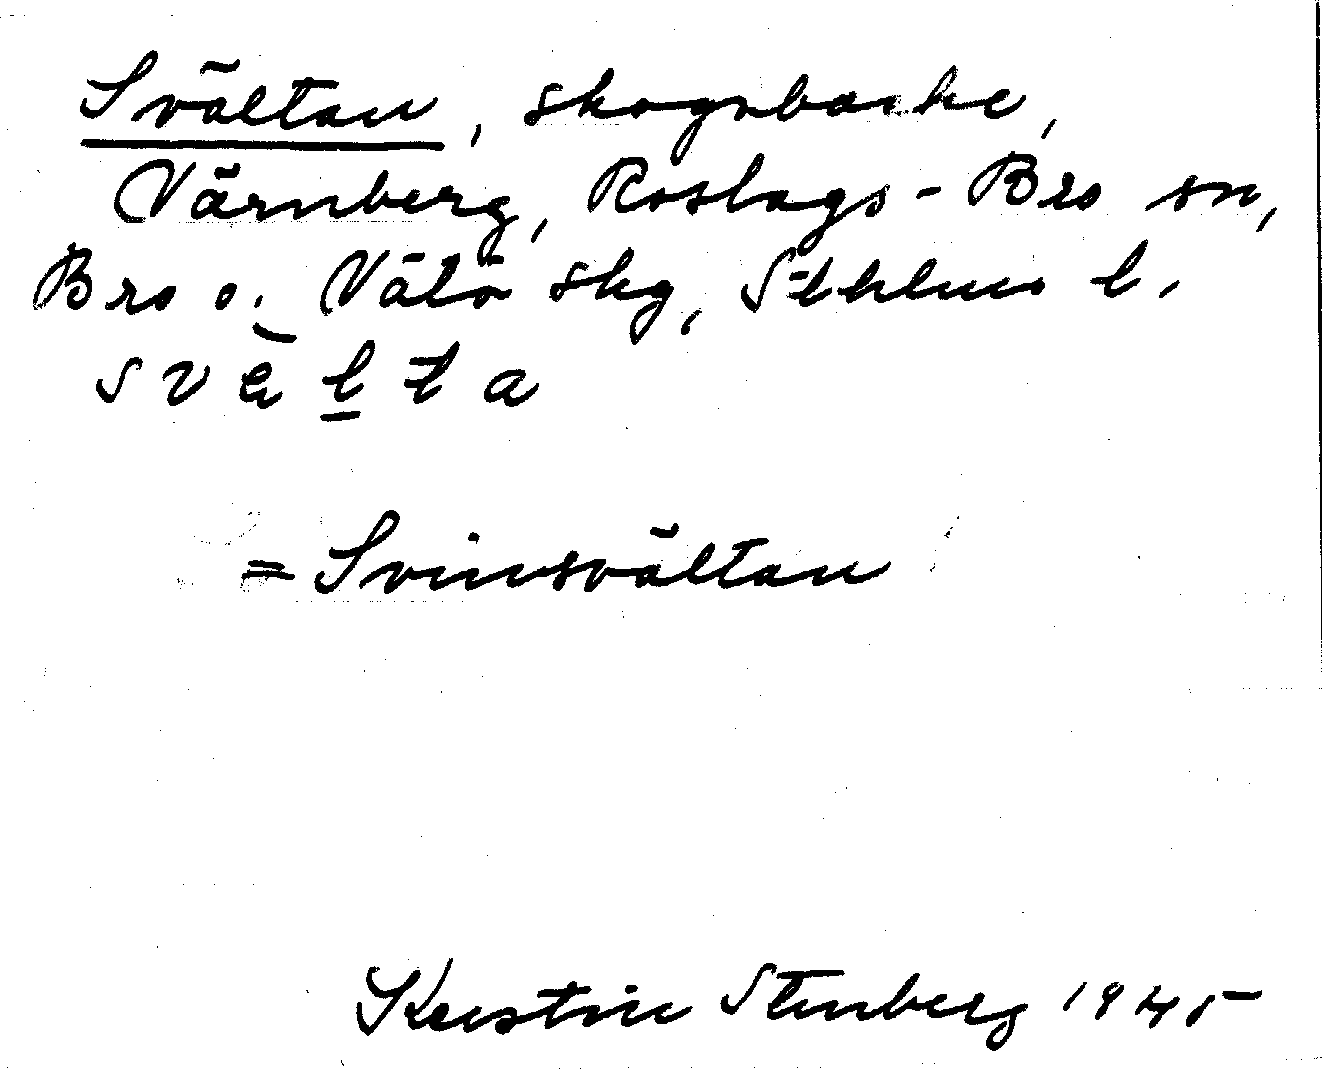 Svältan, skogsbacke,
Värnberg, Roslags-Bro sn,
Bro o. Vätö skg, Sthlms l.
svälta
= Svinsvältan
Kerstin Stenberg 1945